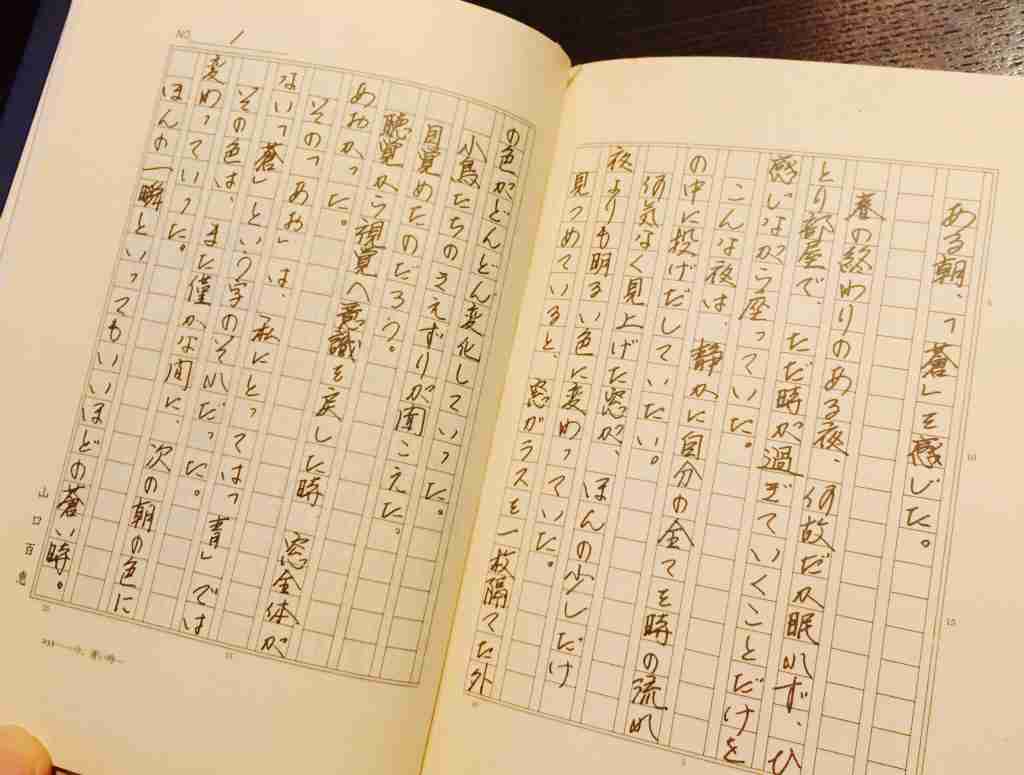 ある朝、「蒼」を感じた。
春の終わりのある夜、何故だか眠れず、ひ
とり部屋で、ただ時が過ぎていくことだけを
感じながら座っていた。
こんな夜は、静かに自分の全てを時の流れ
の中に投げだしていたい。
何気なく見上げた窓が、ほんの少しだけ
夜よりも明るい色に変わっていた。
見つめていると、窓ガラスを一枚隔てた外
NO. 1
の色がどんどん変化していった。
小鳥たちのさえずりが聞こえた。
目覚めたのだろう。
聴覚から視覚へ意識を戻した時 窓全体が
あおかった。
その「あお」は、私にとっては「青」では
ない「蒼」という字のそれだった。
その色は、また僅かな間に、次の朝の色に
変わっていった。
ほんの一瞬といってもいいほどの蒼い時。
山口百恵